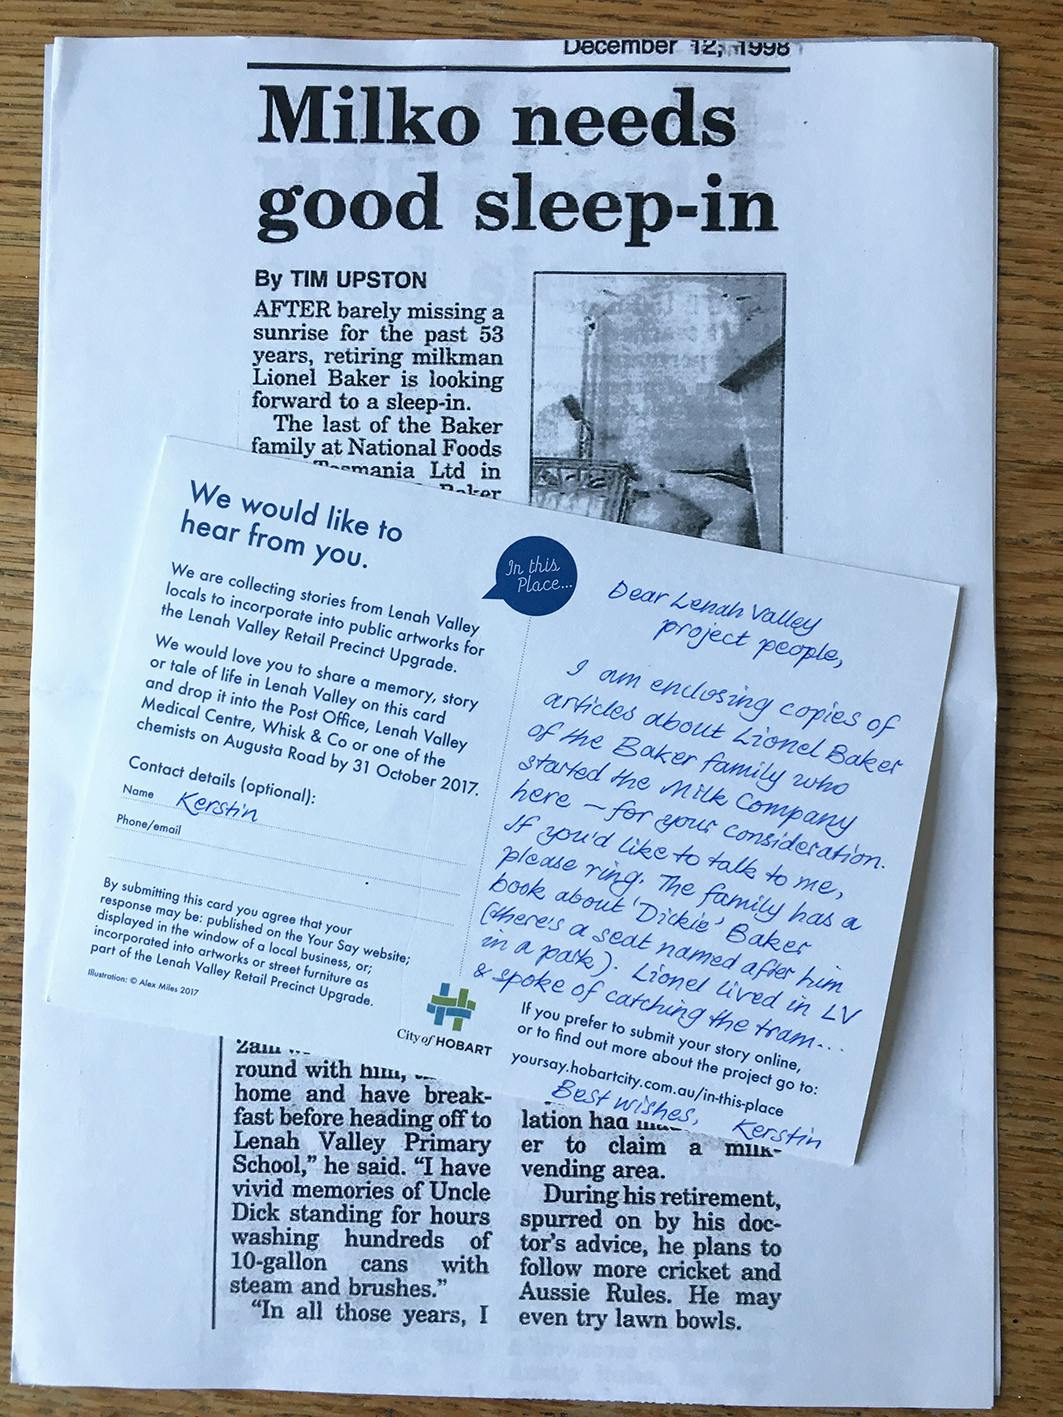 December 12, 1998
Milko needs
good sleep-in
By TIM UPSTON
AFTER barely missing a
sunrise for the past 53
years, retiring milkman
Lionel Baker is looking
forward to a sleep-in.
The last of the Baker
family at National Foods
Tasmania Ltd in
Baker
We would like to
hear from you.
We are collecting stories from Lenah Valley
locals to incorporate into public artworks for
the Lenah Valley Retail Precinct Upgrade.
We would love you to share a memory, story
or tale of life in Lenah Valley on this card
and drop it into the Post Office, Lenah Valley
Medical Centre, Whisk & Co or one of the
chemists on Augusta Road by 31 October 2017.
Contact details (optional):
Name Kerstin
Phone/email
By submitting this card you agree that your
response may be: published on the Your Say website;
displayed in the window of a local business, or;
incorporated into artworks or street furniture as
part of the Lenah Valley Retail Precinct Upgrade.
Illustration: © Alex Miles 2017
In this
Place...
Dear Lenah Valley
project people,
I am enclosing copies of
articles about Lionel Baker
of the Baker family who
started the Milk Company
here – for your consideration.
If you'd like to talk to me,
please ring. The family has a
book about 'Dickie' Baker
(there's a seat named after him
in a park). Lionel lived in LV
& spoke of catching the tram...
City of HOBART
If you prefer to submit your story online,
or to find out more about the project go to:
yoursay.hobartcity.com.au/in-this-place
Best wishes, Kerstin
2am
round with him,
home and have break-
fast before heading off to
Lenah Valley Primary
School," he said. "I have
vivid memories of Uncle
Dick standing for hours
washing hundreds of
10-gallon cans with
steam and brushes."
"In all those years, I
lation had
er to claim a milk-
vending area.
During his retirement,
spurred on by his doc-
tor's advice, he plans to
follow more cricket and
Aussie Rules. He may
even try lawn bowls.